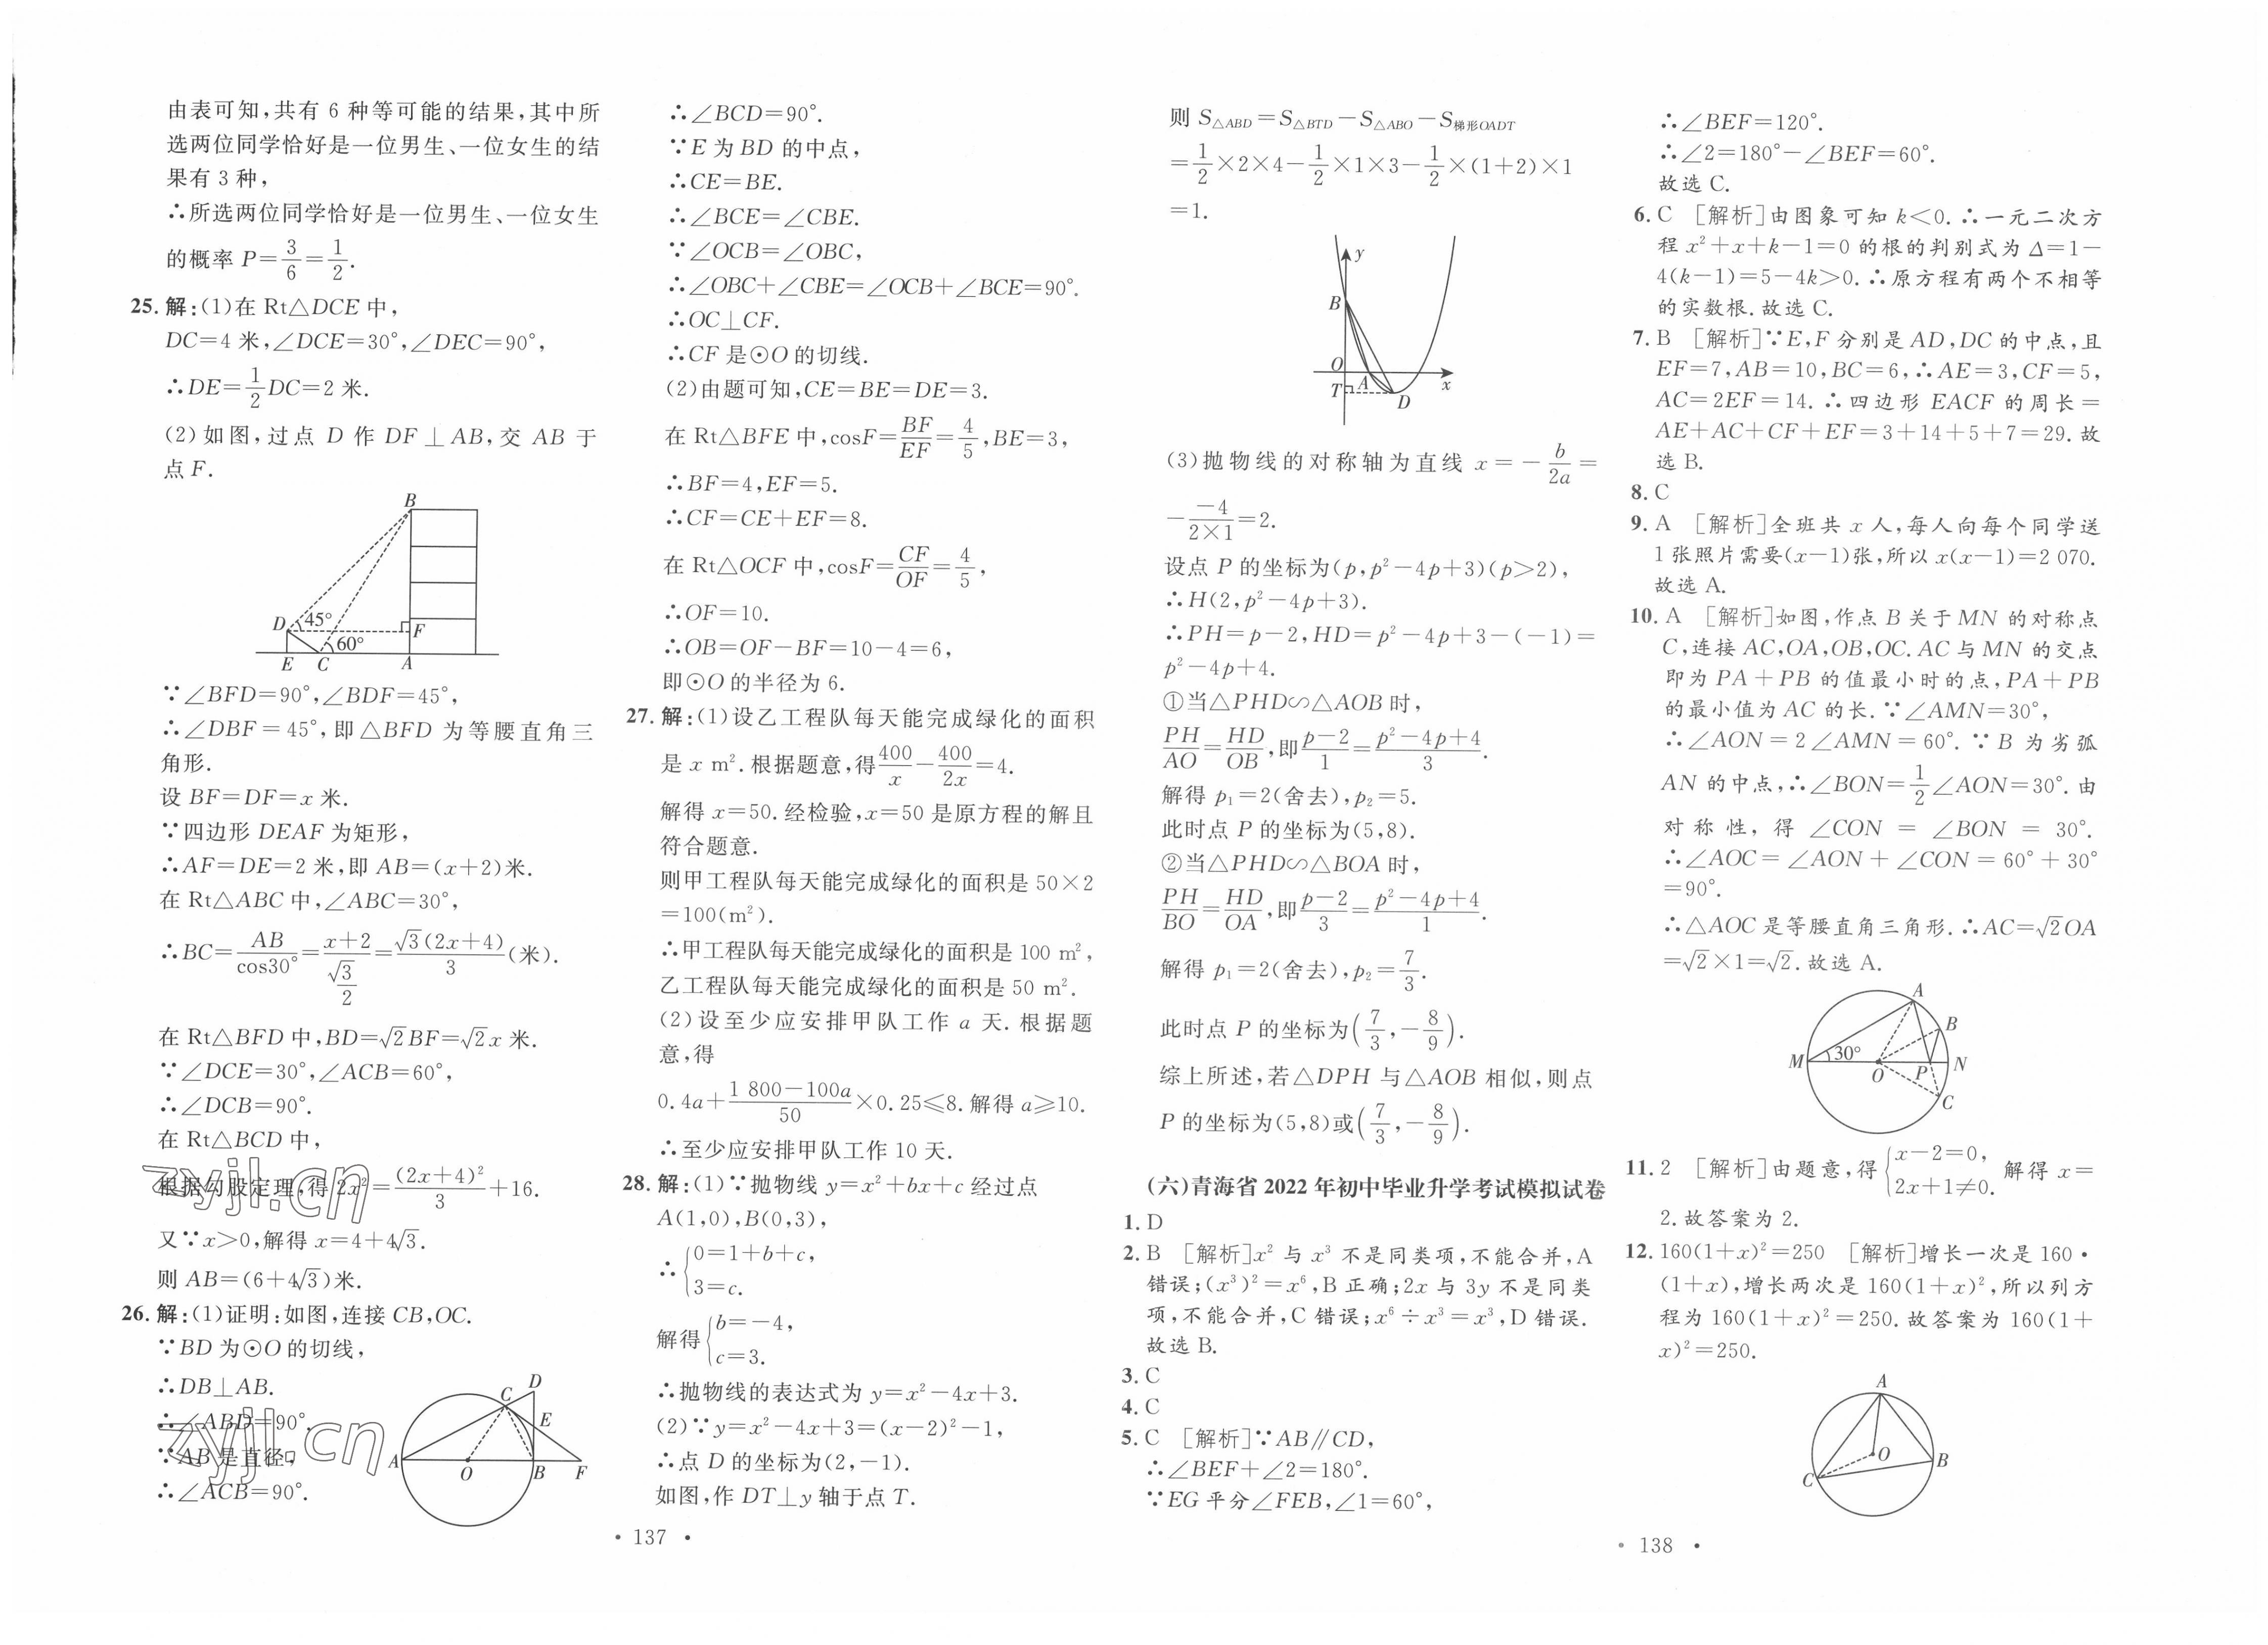 由表可知,共有 6 种等可能的结果,其中所
选两位同学恰好是一位男生、一位女生的结
果有 3 种,
∴所选两位同学恰好是一位男生、一位女生
的概率 P=3/6=1/2.
25. 解:(1)在 Rt△DCE 中,
DC=4 米,∠DCE=30°,∠DEC=90°,
∴DE=1/2DC=2 米.
(2)如图,过点 D 作 DF⊥AB,交 AB 于
点 F.
B
D 45° F
60°
E C A
∵∠BFD=90°,∠BDF=45°,
∴∠DBF=45°,即△BFD 为等腰直角三
角形.
设 BF=DF=x 米.
∵四边形 DEAF 为矩形,
∴AF=DE=2 米,即 AB=(x+2)米.
在 Rt△ABC 中,∠ABC=30°,
∴BC=AB/cos30°=(x+2)/(√3/2)=√3(2x+4)/3(米).
在 Rt△BFD 中,BD=√2BF=√2x 米.
∵∠DCE=30°,∠ACB=60°,
∴∠DCB=90°.
在 Rt△BCD 中,
根据勾股定理,得 2x²=(2x+4)²/3+16.
又∵x>0,解得 x=4+4√3.
则 AB=(6+4√3)米.
26. 解:(1)证明:如图,连接 CB,OC.
∵BD 为⊙O 的切线,
∴DB⊥AB.
∴∠ABD=90°.
∵AB 是直径,
∴∠ACB=90°.
D
C
E
A O B F
zyjl.cn
zyjl.cn
∴∠BCD=90°.
∵E 为 BD 的中点,
∴CE=BE.
∴∠BCE=∠CBE.
∵∠OCB=∠OBC,
∴∠OBC+∠CBE=∠OCB+∠BCE=90°.
∴OC⊥CF.
∴CF 是⊙O 的切线.
(2)由题可知,CE=BE=DE=3.
在 Rt△BFE 中,cosF=BF/EF=4/5,BE=3,
∴BF=4,EF=5.
∴CF=CE+EF=8.
在 Rt△OCF 中,cosF=CF/OF=4/5,
∴OF=10.
∴OB=OF−BF=10−4=6,
即⊙O 的半径为 6.
27. 解:(1)设乙工程队每天能完成绿化的面积
是 x m². 根据题意,得400/x−400/2x=4.
解得 x=50. 经检验,x=50 是原方程的解且
符合题意.
则甲工程队每天能完成绿化的面积是 50×2
=100(m²).
∴甲工程队每天能完成绿化的面积是 100 m²,
乙工程队每天能完成绿化的面积是 50 m².
(2)设至少应安排甲队工作 a 天. 根据题
意,得
0.4a+(1 800−100a)/50×0.25≤8. 解得 a≥10.
∴至少应安排甲队工作 10 天.
28. 解:(1)∵抛物线 y=x²+bx+c 经过点
A(1,0),B(0,3),
∴{0=1+b+c,
3=c.
解得{b=−4,
c=3.
∴抛物线的表达式为 y=x²−4x+3.
(2)∵y=x²−4x+3=(x−2)²−1,
∴点 D 的坐标为(2,−1).
如图,作 DT⊥y 轴于点 T.
• 137 •
则 S△ABD=S△BTD−S△ABO−S梯形OADT
=1/2×2×4−1/2×1×3−1/2×(1+2)×1
=1.
y
B
O A x
T D
(3)抛物线的对称轴为直线 x=−b/2a=
−(−4)/(2×1)=2.
设点 P 的坐标为(p,p²−4p+3)(p>2),
∴H(2,p²−4p+3).
∴PH=p−2,HD=p²−4p+3−(−1)=
p²−4p+4.
①当△PHD∽△AOB 时,
PH/AO=HD/OB,即(p−2)/1=(p²−4p+4)/3.
解得 p₁=2(舍去),p₂=5.
此时点 P 的坐标为(5,8).
②当△PHD∽△BOA 时,
PH/BO=HD/OA,即(p−2)/3=(p²−4p+4)/1.
解得 p₁=2(舍去),p₂=7/3.
此时点 P 的坐标为(7/3,−8/9).
综上所述,若△DPH 与△AOB 相似,则点
P 的坐标为(5,8)或(7/3,−8/9).
(六)青海省 2022 年初中毕业升学考试模拟试卷
1. D
2. B [解析]x² 与 x³ 不是同类项,不能合并,A
错误;(x³)²=x⁶,B 正确;2x 与 3y 不是同类
项,不能合并,C 错误;x⁶÷x³=x³,D 错误.
故选 B.
3. C
4. C
5. C [解析]∵AB∥CD,
∴∠BEF+∠2=180°.
∵EG 平分∠FEB,∠1=60°,
∴∠BEF=120°.
∴∠2=180°−∠BEF=60°.
故选 C.
6. C [解析]由图象可知 k<0. ∴一元二次方
程 x²+x+k−1=0 的根的判别式为 Δ=1−
4(k−1)=5−4k>0. ∴原方程有两个不相等
的实数根. 故选 C.
7. B [解析]∵E,F 分别是 AD,DC 的中点,且
EF=7,AB=10,BC=6,∴AE=3,CF=5,
AC=2EF=14. ∴四边形 EACF 的周长=
AE+AC+CF+EF=3+14+5+7=29. 故
选 B.
8. C
9. A [解析]全班共 x 人,每人向每个同学送
1 张照片需要(x−1)张,所以 x(x−1)=2 070.
故选 A.
10. A [解析]如图,作点 B 关于 MN 的对称点
C,连接 AC,OA,OB,OC. AC 与 MN 的交点
即为 PA+PB 的值最小时的点,PA+PB
的最小值为 AC 的长. ∵∠AMN=30°,
∴∠AON=2∠AMN=60°. ∵B 为劣弧
AN 的中点,∴∠BON=1/2∠AON=30°. 由
对称性,得 ∠CON=∠BON=30°.
∴∠AOC=∠AON+∠CON=60°+30°
=90°.
∴△AOC 是等腰直角三角形. ∴AC=√2OA
=√2×1=√2. 故选 A.
A
B
M 30° O P N
C
11. 2 [解析]由题意,得{x−2=0, 解得 x=
2x+1≠0.
2. 故答案为 2.
12. 160(1+x)²=250 [解析]增长一次是 160•
(1+x),增长两次是 160(1+x)²,所以列方
程为 160(1+x)²=250. 故答案为 160(1+
x)²=250.
A
O B
C
• 138 •